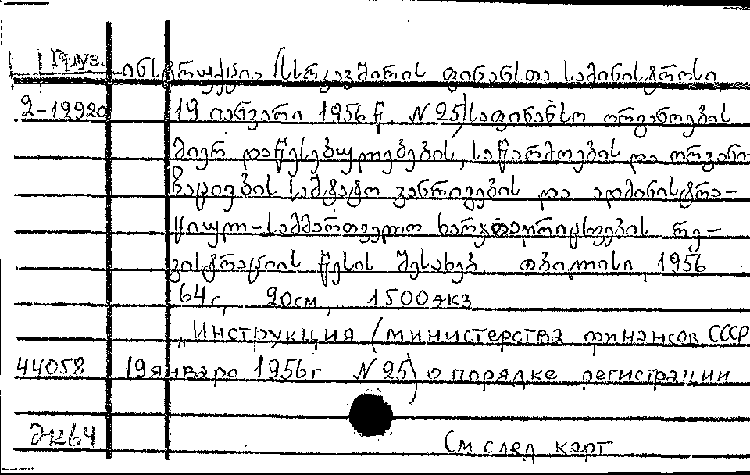 Груз.
ინსტრუქცია (სსრ კავშირის ფინანსთა სამინისტროსი
2-19920 19 იანვარი 1956 წ. N 25) საფინანსო ორგანოების
მიერ დაწესებულებების, საწარმოების და ორგანი-
ზაციების საშტატო განრიგების და ადმინისტრა-
ციულ-სამმართველო ხარჯთაღრიცხვების რე-
გისტრაციის წესის შესახებ. თბილისი, 1956
64 с, 20 см, 1500 экз
„Инструкция (министерства финансов СССР
44058 19 января 1956 г N 25) о порядке регистрации
См след карт